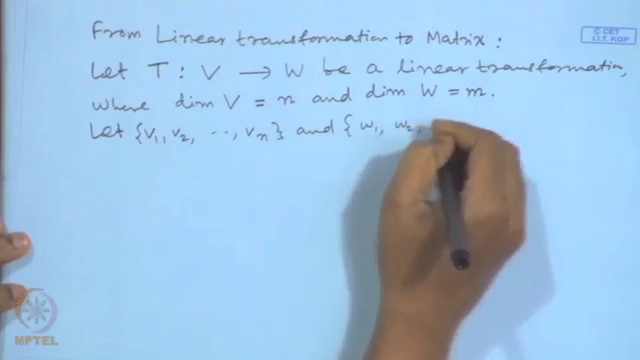 From Linear transformation to Matrix:
© CET
I.I.T. KGP
Let T: V → W be a linear transformation,
where dim V = n and dim W = m.
Let {v₁, v₂, .., vₙ} and { w₁, w₂,
NPTEL